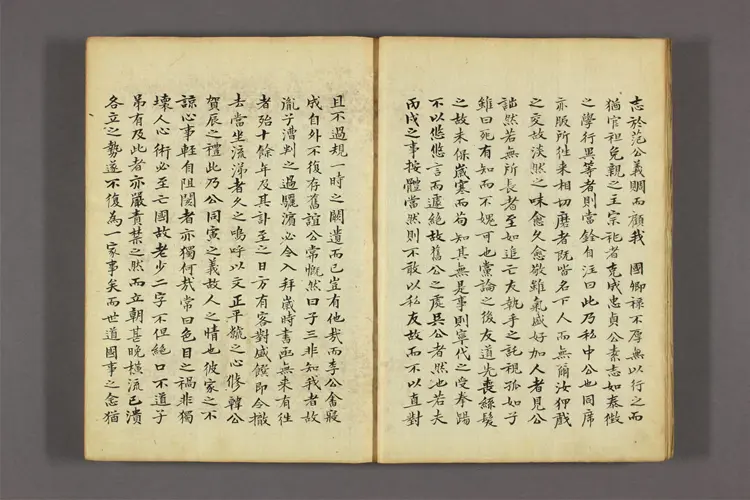 志於范公義田而顧我　國卿祿不厚無以行之而
猶官祖免親之主宗祀者克成忠貞公素志如泰徵
之學行異等者則嘗銓自注曰此乃私中公也同席
亦版所往來相切磨者旣皆名下人而無爾汝狎戲
之交故淡然之味愈久愈敬雖氣盛好加人者見公
詘然若無所長者至如追亡友執手之託視孤如子
雖曰死有知而不媿可也黨論之後友道先喪絲髮
之故未保歲寒而苟知其無是事則寧代之受拳踢
不以悠悠言而遽絶故舊公之處吳公者然也若夫
丙戌之事按體當然則不敢以私友故而不以直對
且不過規一時之闕遺而已豈有他哉而李公舍寢
成自外不復存舊誼公常慨然曰子三非知我者故
胤子漕判之過驪濱必令入拜歲時書函無來有往
者殆十餘年及其訃至之日方有客對盛饌卽令撤
去當坐流涕者久之嗚呼以文正平龇之心修韓公
賀辰之禮此乃公同寅之義故人之情也彼家之不
諒心事輕自阻閡者亦獨何哉常曰色目之禍非獨
壞人心術必至亡國故老少二字不但絶口不道子
弟有及此者亦嚴責禁之然而立朝甚晚橫流已潰
各立之勢遂不復為一家事矣而世道國事之念猶